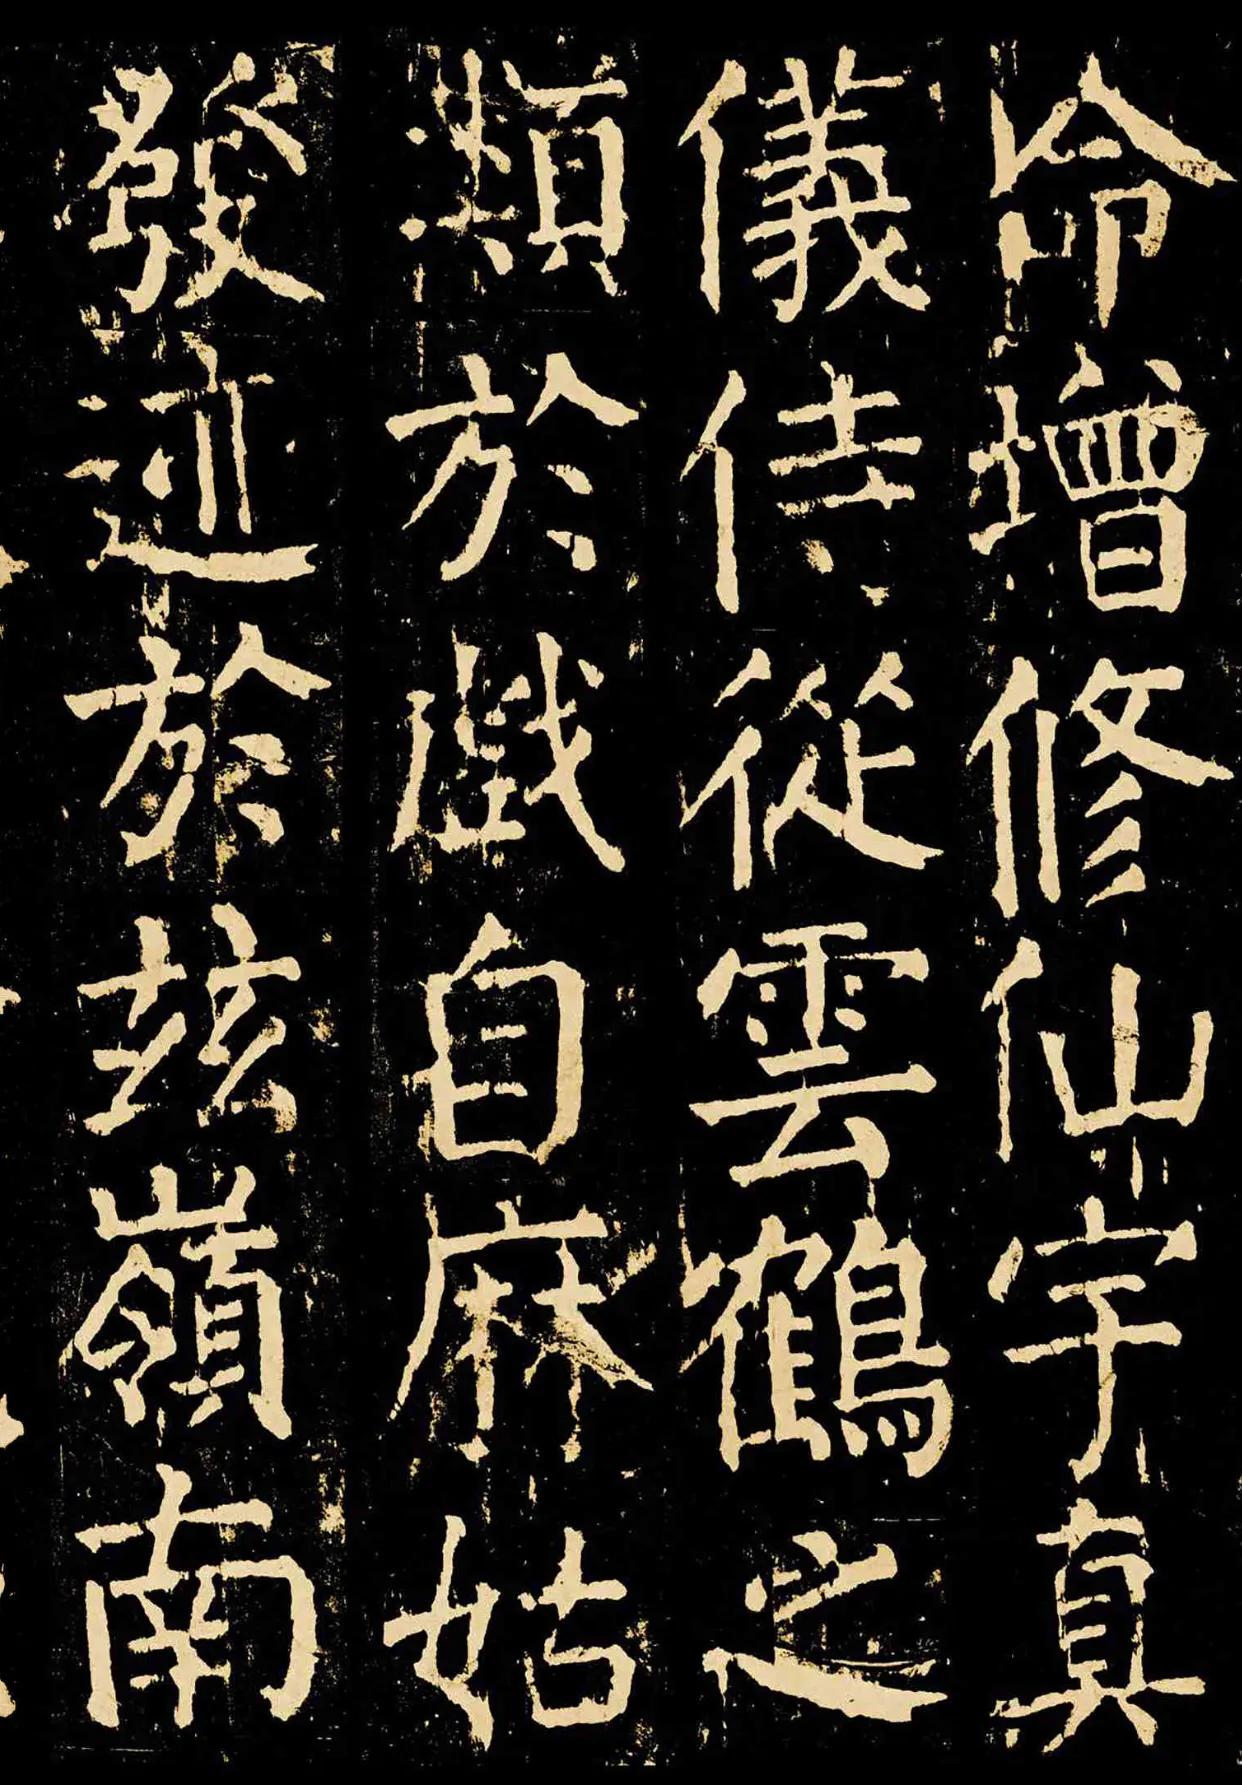 命增修仙宇真
儀侍從雲鶴之
類於戲自麻姑
發迹於兹嶺南